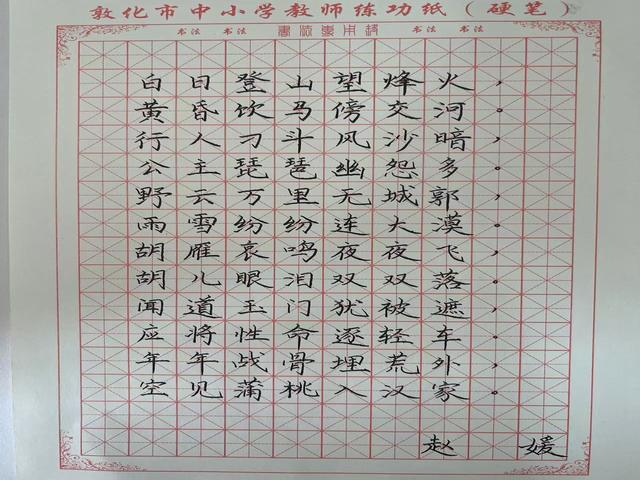 敦化市中小学教师练功纸（硬笔）
书法 书法 书法 书法
白日登山望烽火，
黄昏饮马傍交河。
行人刁斗风沙暗，
公主琵琶幽怨多。
野云万里无城郭，
雨雪纷纷连大漠。
胡雁哀鸣夜夜飞，
胡儿眼泪双双落。
闻道玉门犹被遮，
应将性命逐轻车。
年年战骨埋荒外，
空见蒲桃入汉家。
赵媛